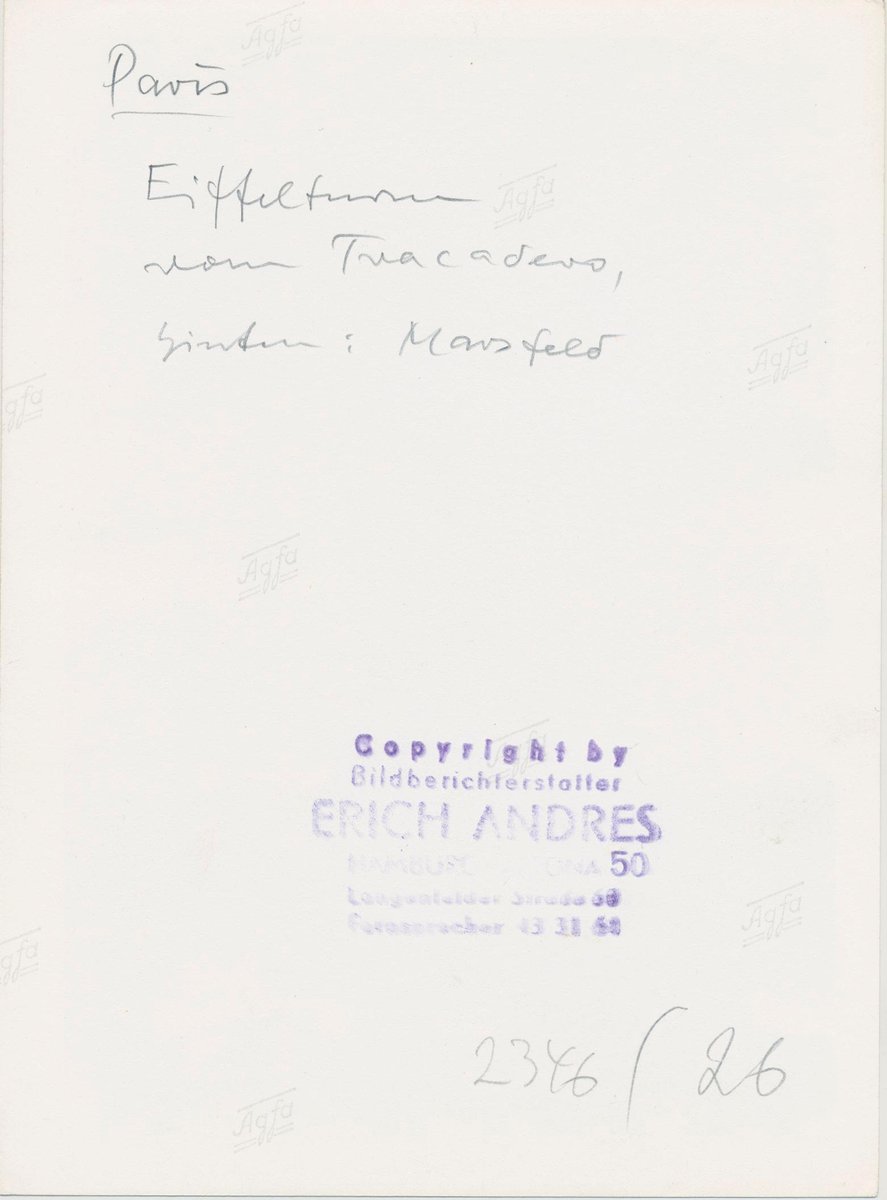 Paris
Eiffelturm
vom Tracadero,
hinten: Marsfeld
Copyright by
Bildberichterstatter
ERICH ANDRES
HAMBURG 50
Langenfelder Straße
Fernsprecher 43
2346/26
Agfa
Agfa
Agfa
Agfa
Agfa
Agfa
Agfa
Agfa
Agfa